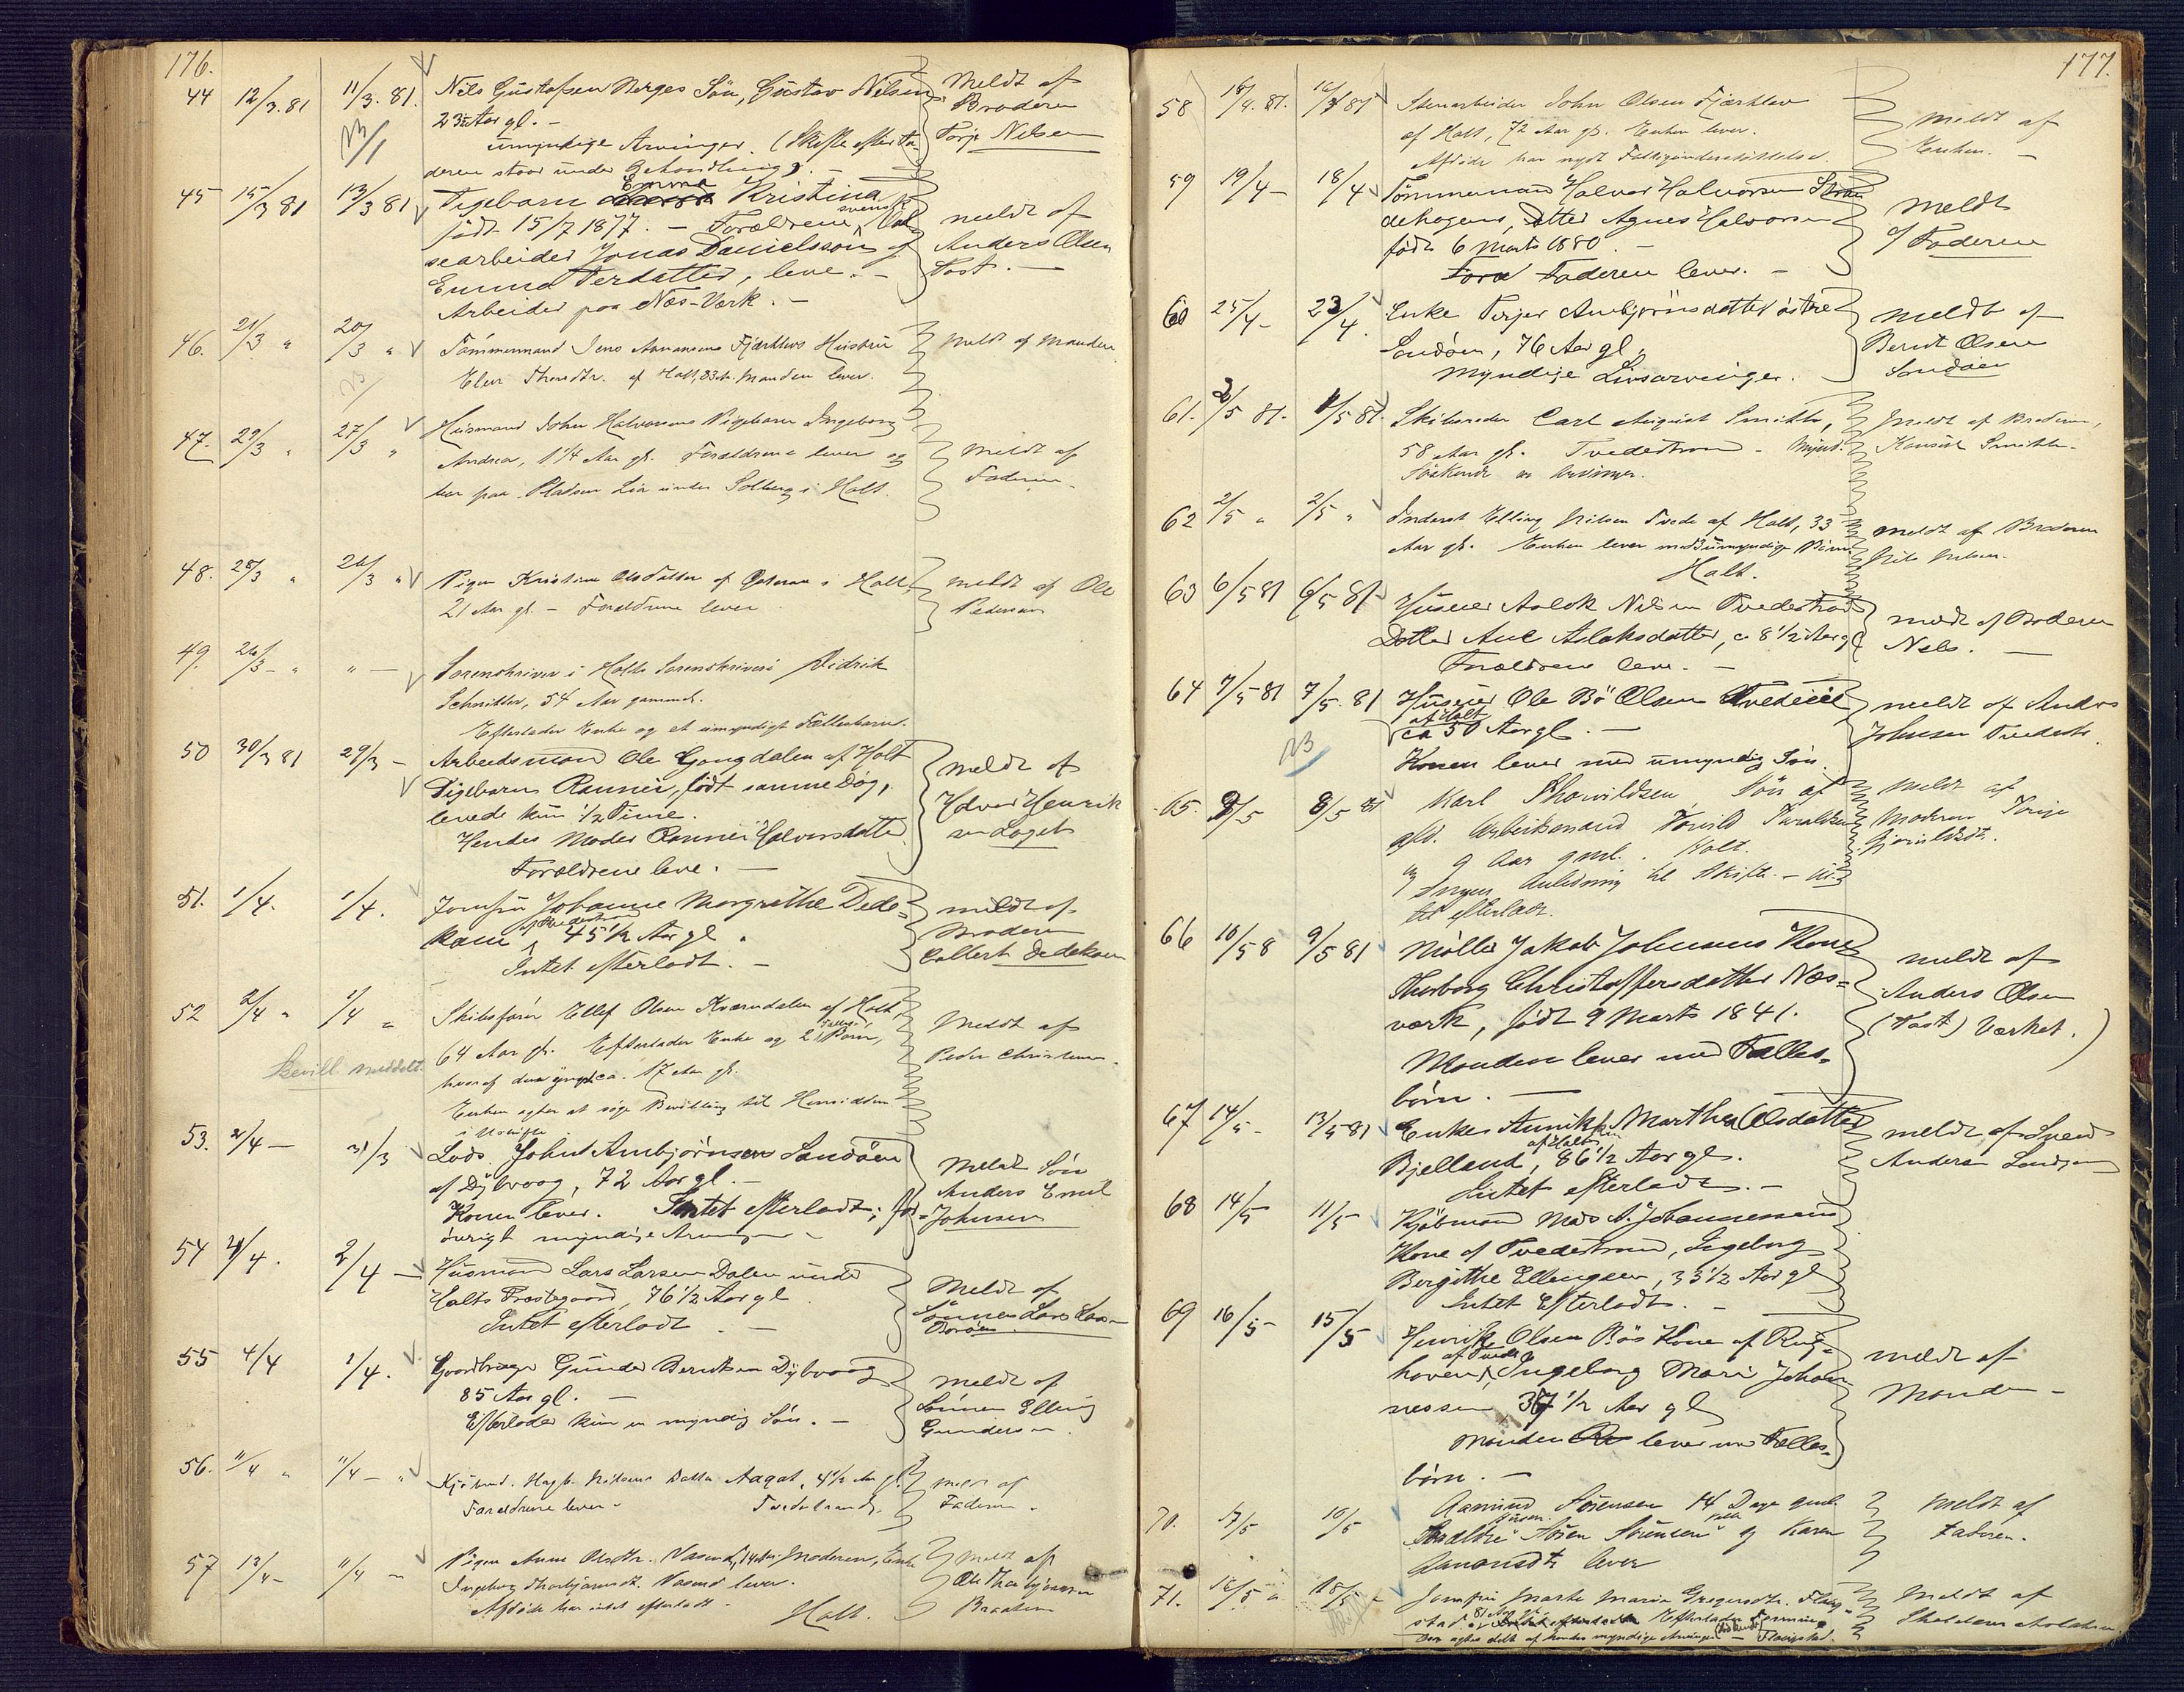 176.
44 12/3.81 11/3.81. Nils Gustafsen Verges Sön, Gustav Nilsen Meldt af
23 Aar gl. – Broderen
umyndige Arvinger. (Skifte efter Fa- Torje Nilsen
deren staar under Behandling).
45 15/3 81 13/3 81 Pigebarn Emma Kristina
född 15/7 1877. – Forældrene, svensk meldt af
searbeider Jonas Danielsson og Anders Olsen
Emma Persdatter, leve. – Tost. –
Arbeider paa Næs-Værk. –
46. 21/3 " 20/3 " Tømmermand Jens Aanansens Fjærkleos Hustru Meldt af Manden
Elen Thordtr. af Holt, 83 Ar. Manden lever.
47. 29/3 " 27/3 " Husmand John Halvorsens Pigebarn Ingeborg
Andrea, 1 1/4 Aar gl. Forældrene lever og Meldt af
bor paa Pladsen Lia under Solberg i Holt. Faderen.
48. 28/3 " 26/3 " Pigen Kristine Olsdatter af i Holt, meldt af Ole
21 Aar gl. – Forældrene lever Pedersen
49. 26/3 – " " – Sorenskriver i Holts Sorenskriveri Didrik
Schnitler, 54 Aar gammel.
Efterlader Enke og et umyndigt Fællesbarn.
50 30/3 81 29/3 – Arbeidsmand Ole Gongdalen af Holt meldt af
Pigebarn Rannei, født samme Dag,
levede kun 1/2 Time. Henrik
Hendes Moder Rannei Halvorsdatter
Forældrene leve. –
51. 1/4. 1/4. Jomfru Johanne Margrethe Dede- meldt af
kam af Tvedestrand 45 1/2 Aar gl. Broderen
Intet efterladt. – Collert Dedekam
52 2/4 " 1/4 " Skibsfører Ellef Olsen Kværndalen af Holt, Meldt af
64 Aar gl. Efterlader Enke og 2 Fælles Børn, Peder Christensen.
Bevill. meddelt. hvoraf den yngste ca. 17 Aar gl.
Enken agter at søge Bevilling til Hensidden
i uskiftet
53. 2/4 – 31/3 Lods John Ambjørnsen Sandøen Meldt Søn
af Dybvaag, 72 Aar gl. – Anders Emil
Konen lever. Intet efterladt; for- Johnsen
øvrigt myndige Arvinger –
54 4/4. 2/4 – Husmand Lars Larsen Dalen under Meldt af
Holts Præstegaard, 76 1/2 Aar gl Sønnen Lars Lars-
Intet efterladt. –
55 4/4 1/4. Gaardbruger Gunder Berntsen Dybvaag meldt af
85 Aar gl. – Sønnen Elling
Efterlader kun en myndig Søn. – Gundersen
56. 11/4 " 11/4 – " Kjøbmd. Hagb. Nilsens Datter Aagot, 4 1/2 Aar gl. Meldt af
Forældrene lever. Tvedestrand. Faderen.
57 13/4 – 11/4 – Pigen Anne Olsdtr. 14 Aar. Moderen, Enke Meldt af
Ingeborg Thorbjørnsdt. lever. Ole Thorbjørnsen
Afdøde har intet efterladt – Holt. Braaten
177.
58 18/4.81. 16/4 81 Stenarbeider John Olsen Fjærkleo Meldt af
af Holt, 72 Aar gl. Enken lever. Enken. –
Afdøde har nydt Fattigunderstøttelse.
59 19/4 – 18/4 Tømmermand Halvor Halvorsen Stran-
dehagens Datter Agnes Halvorsen Meldt
født 6 Marts 1880. – af Faderen
Faderen lever. –
60 25/4 – 23/4. Enke Terjer Ambjørnsdatter østre Meldt af
Sandøen, 76 Aar gl. Bernt Olsen
Myndige Livsarvinger. Sandøen
61. 3/5 81. 1/5 81. Skibsreder Carl August Smith, Meldt af Broderen,
58 Aar gl. Tvedestrand – Mynd. Konsul Smith.
Søskende er Arvinger.
62 2/5 " 2/5 " Inderst Elling Nilsen Tvede af Holt, 33 meldt af Broderen
Aar gl. Enken lever med umyndige Børn Nils Nilsen.
Holt.
63 6/5 81 6/5 81 Huseier Aslak Nilsen Tvedestrand
Datter Ane Aslaksdatter, ca 8 1/2 Aar gl meldt af Broderen
Forældrene leve. – Nils. –
64 7/5 81 7/5.81 Huseier Ole Bö Olsen meldt af Anders
af Holt
ca 50 Aar gl. – Johnsen Tvedestr.
Konen lever med umyndig Søn.
65. 9/5 8/5 81 Karl Thorvildsen Søn af Meldt af
afd. Arbeidsmand Torvild Taraldsen Moderen Torje
9 Aar gml. Holt.
Ingen Anledning til Skifte. – In-
tet efterladt.
66 10/5 8 9/5 81 Møller Jakob Johnsens Kone meldt af
Thorborg Christoffersdatter Næs- Anders Olsen
værk, født 9 Marts 1841. (Tost) Værket.
Manden lever med Fælles-
børn. –
67 14/5 – 13/5 81 Enke Annikken Marthea Olsdatter meldt af Svend
af Holt
Bjelland, 86 1/2 Aar gl. Andersen
Intet efterladt. –
68 14/5 11/5 Kjøbmand Mads A. Johannessens
Kone af Tvedestrand, Ingeborg
Bergithe Ellingsen, 33 1/2 Aar gl
Intet Efterladt. –
69 16/5 – 15/5 Henrik Olsen Røs Kone af Rug-
af Tvede meldt af
hoven, Ingeborg Mari Johan- Manden –
nessen, 37 1/2 Aar gl
Manden lever med Fælles-
børn. –
70. 17/5 10/5 Aamund Sørensen 14 Dage gml. Meldt af
Forældre Husm. Søren Sørensen og Karen Faderen.
Aanonsdtr lever
71. 16/5 " 15/5 – Jomfru Marthe Maria Gregersdtr. Flaug- Meldt af
stad. 81 Aar gl. Efterlader
myndige Arvinger – Flaugstad.